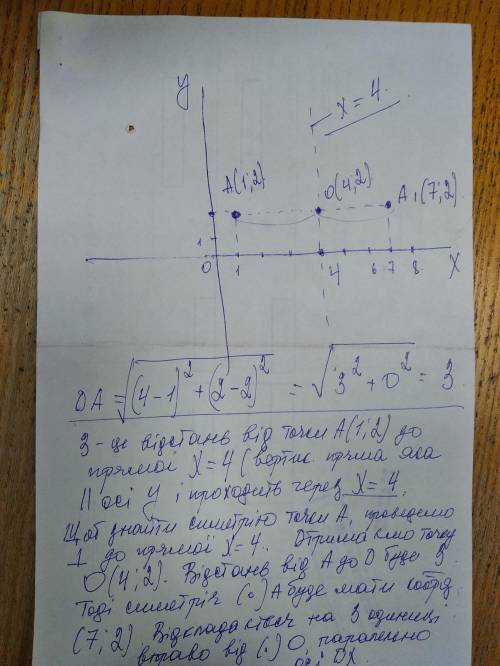 y
x = 4
A(1;2)
O(4;2)
A₁(7;2)
1
0 1 4 6 7 8 X
OA = √((4-1)² + (2-2)²) = √(3² + 0²) = 3
3 - це відстань від точки A(1;2) до
прямої X=4 (вертик. пряма яка
|| осі y і проходить через X=4.
Щоб знайти симетрію точки A, проведемо
⊥ до прямої X=4. Отримаємо точку
O(4;2). Відстань від A до O буде 3
Тоді симетріч (•) A буде мати коорд
(7;2). Відкладається на 3 одиниці
вправо від (•) O, паралельно
осі OX.